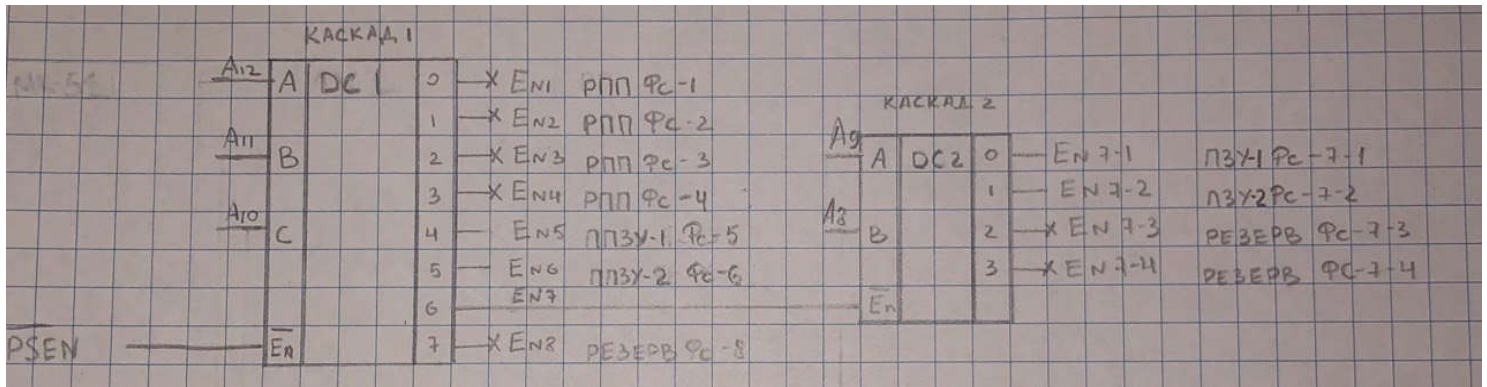 КАСКАД 1
A12 A DC1 0 EN1 РПП Фс-1
1 EN2 РПП Фс-2
A11 B 2 EN3 РПП Фс-3
3 EN4 РПП Фс-4
A10 C 4 EN5 ППЗУ-1 Фс-5
5 EN6 ППЗУ-2 Фс-6
6 EN7
PSEN En 7 EN8 РЕЗЕРВ Фс-8
КАСКАД 2
A9 A DC2 0 EN7-1 ПЗУ-1 Фс-7-1
1 EN7-2 ПЗУ-2 Фс-7-2
A8 B 2 EN7-3 РЕЗЕРВ Фс-7-3
3 EN7-4 РЕЗЕРВ Фс-7-4
En